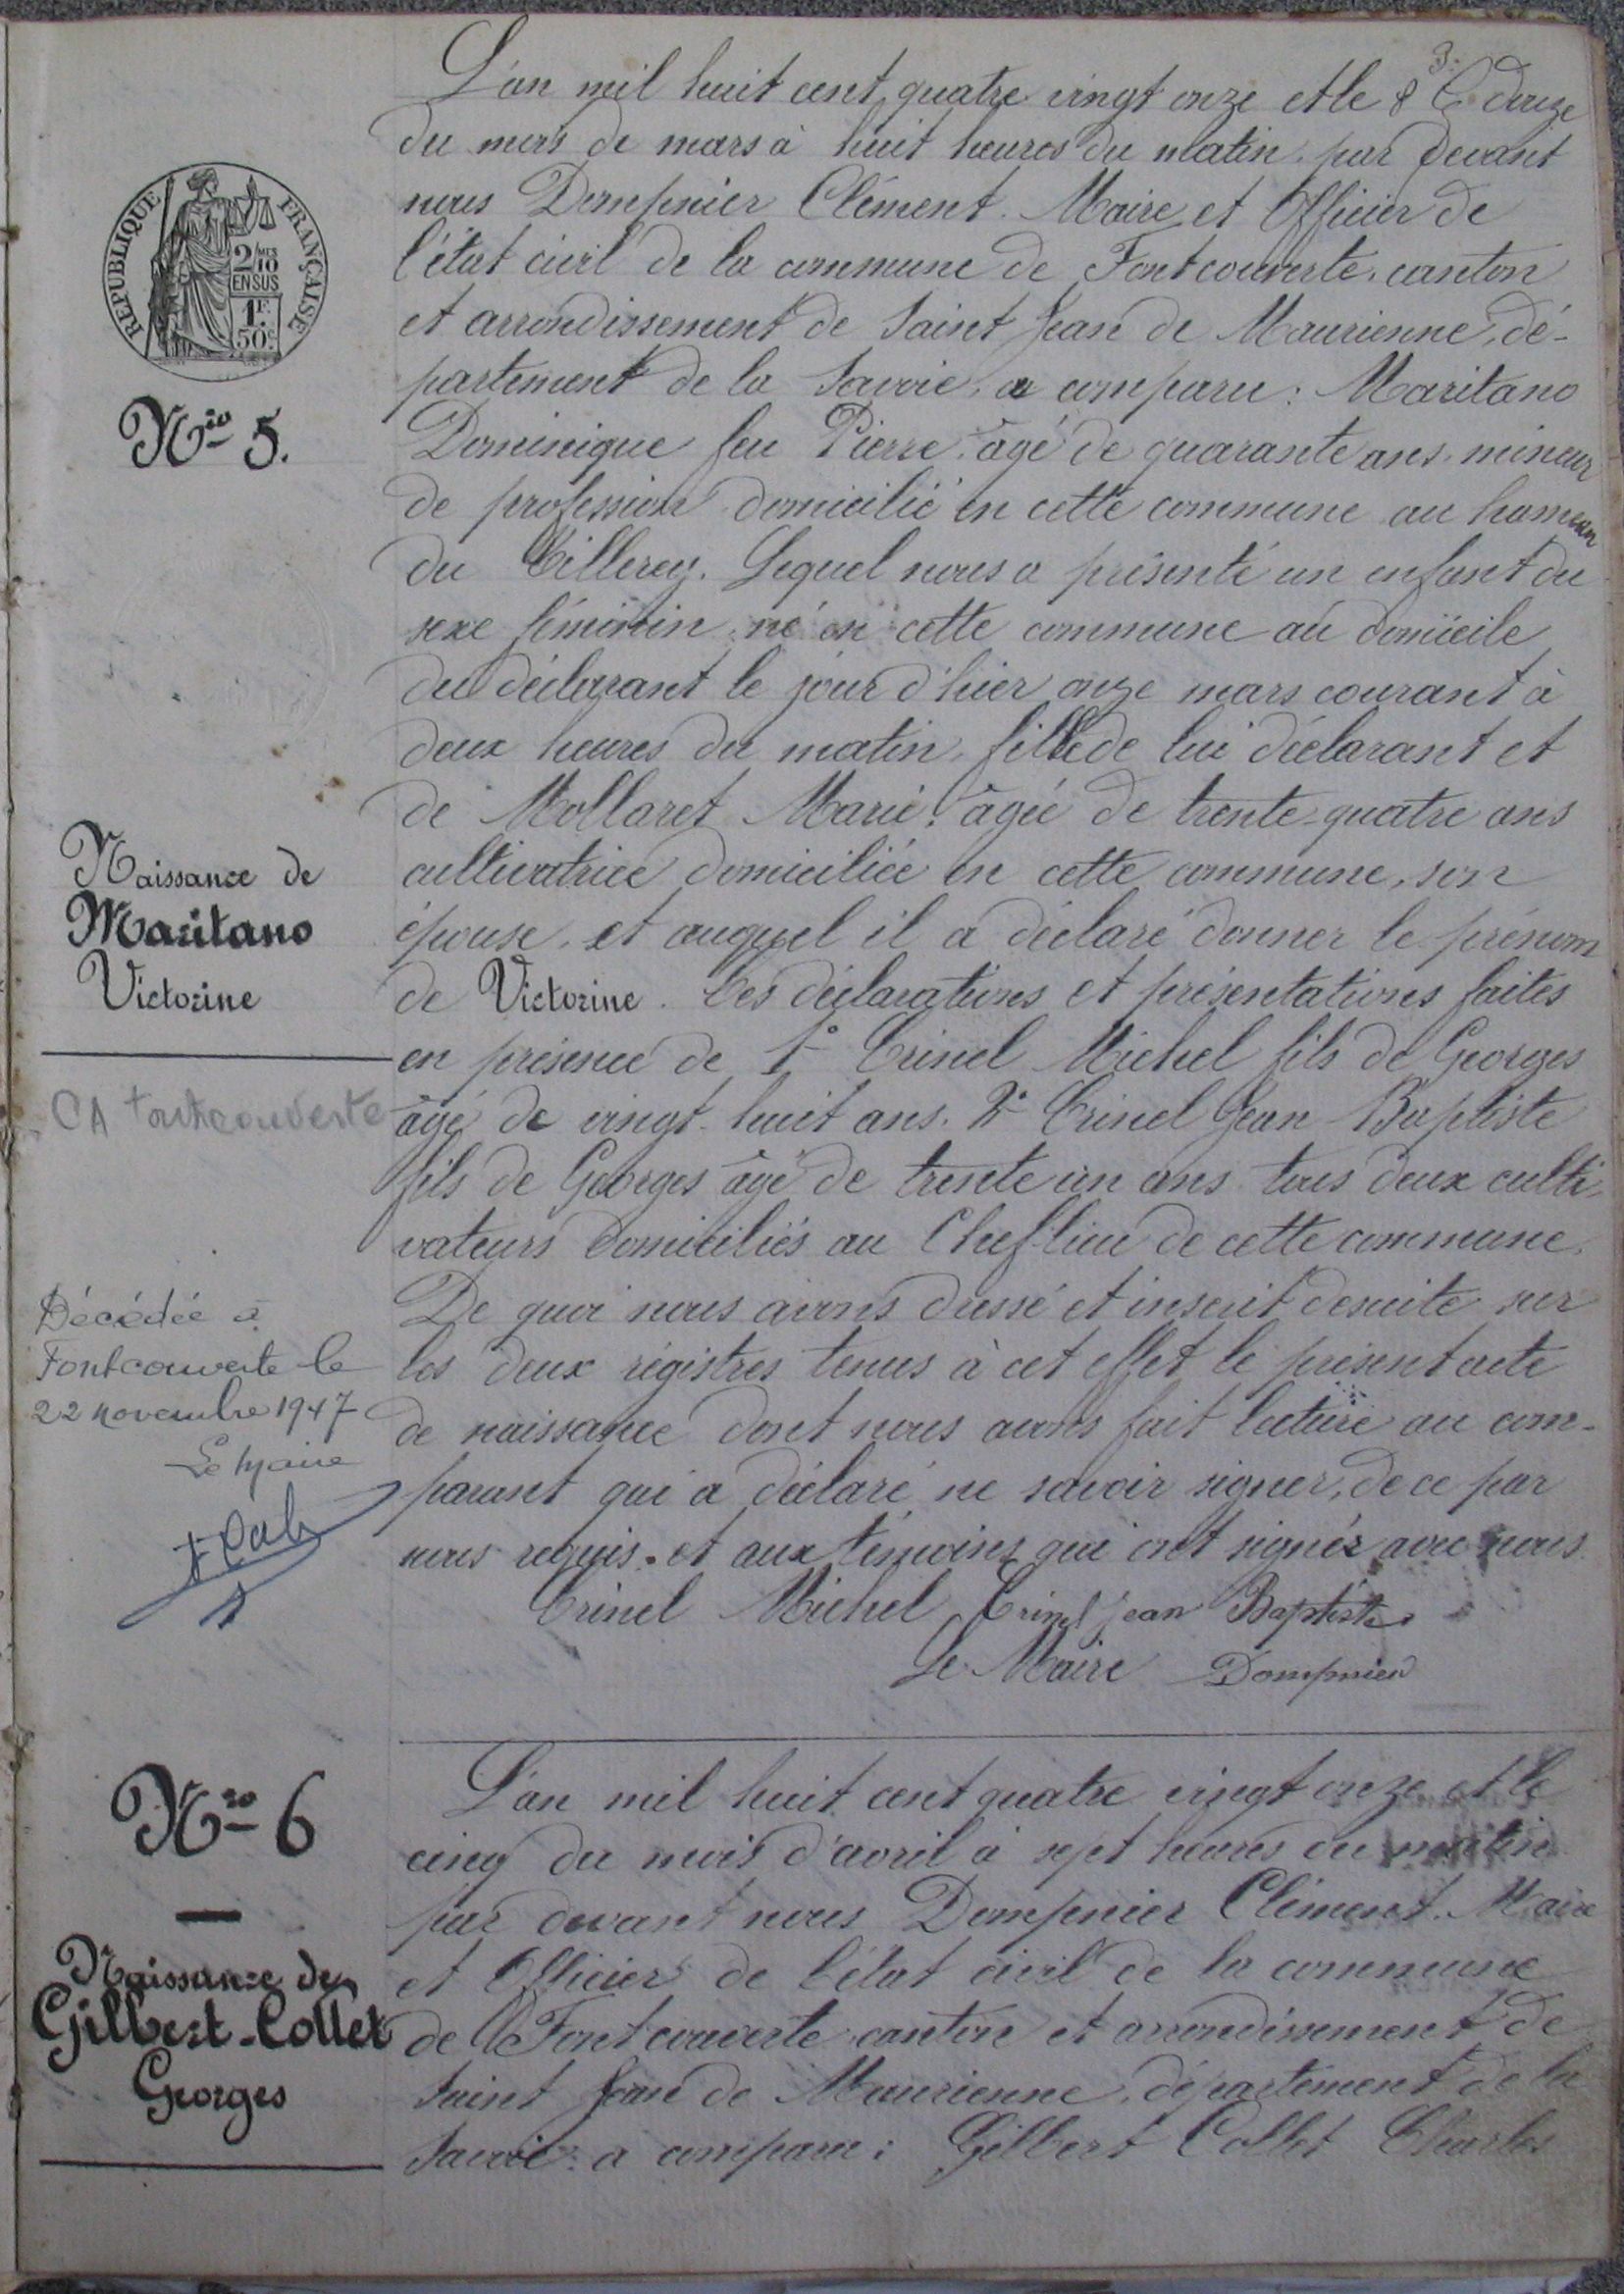 3.
L'an mil huit cent quatre vingt onze et le douze
du mois de mars à huit heures du matin. par devant
nous Dompnier Clément. Maire et Officier de
l'état civil de la commune de Fontcouverte, canton
et arrondissement de Saint Jean de Maurienne, dé-
partement de la Savoie, a comparu : Maritano
Dominique feu Pierre, âgé de quarante ans, mineur
de profession domicilié en cette commune au hameau
du Villerey. Lequel nous a présenté un enfant du
sexe féminin, né en cette commune au domicile
du déclarant le jour d'hier onze mars courant à
deux heures du matin, fille de lui déclarant et
de Mollaret Marie, âgée de trente-quatre ans
cultivatrice domiciliée en cette commune, son
épouse, et auquel il a déclaré donner le prénom
de Victorine. Ces déclarations et présentations faites
en présence de 1° Crinel Michel fils de Georges
âgé de vingt-huit ans. 2° Crinel Jean-Baptiste
fils de Georges âgé de trente un ans tous deux culti-
vateurs domiciliés au Chef-lieu de cette commune.
De quoi nous avons dressé et inscrit desuite sur
les deux régistres tenus à cet effet le présent acte
de naissance dont nous avons fait lecture au com-
parant qui a déclaré ne savoir signer, de ce par
nous requis. et aux témoins qui ont signés avec nous.
Crinel Michel Crinel jean Baptiste
Le Maire Dompnier
REPUBLIQUE FRANÇAISE
2/10MES
EN SUS
1F.
50C
Nro 5.
Naissance de
Maritano
Victorine
CA Fontcouverte
Décédée à
Fontcouverte le
22 novembre 1947
Le Maire
Nro 6
Naissance de
Gilbert-Collet
Georges
L'an mil huit cent quatre vingt onze et le
cinq du mois d'avril à sept heures du matin
par devant nous Dompnier Clément. Maire
et Officier de l'état civil de la commune
de Fontcouverte, canton et arrondissement de
Saint Jean de Maurienne, département de la
Savoie a comparu : Gilbert Collet Charles